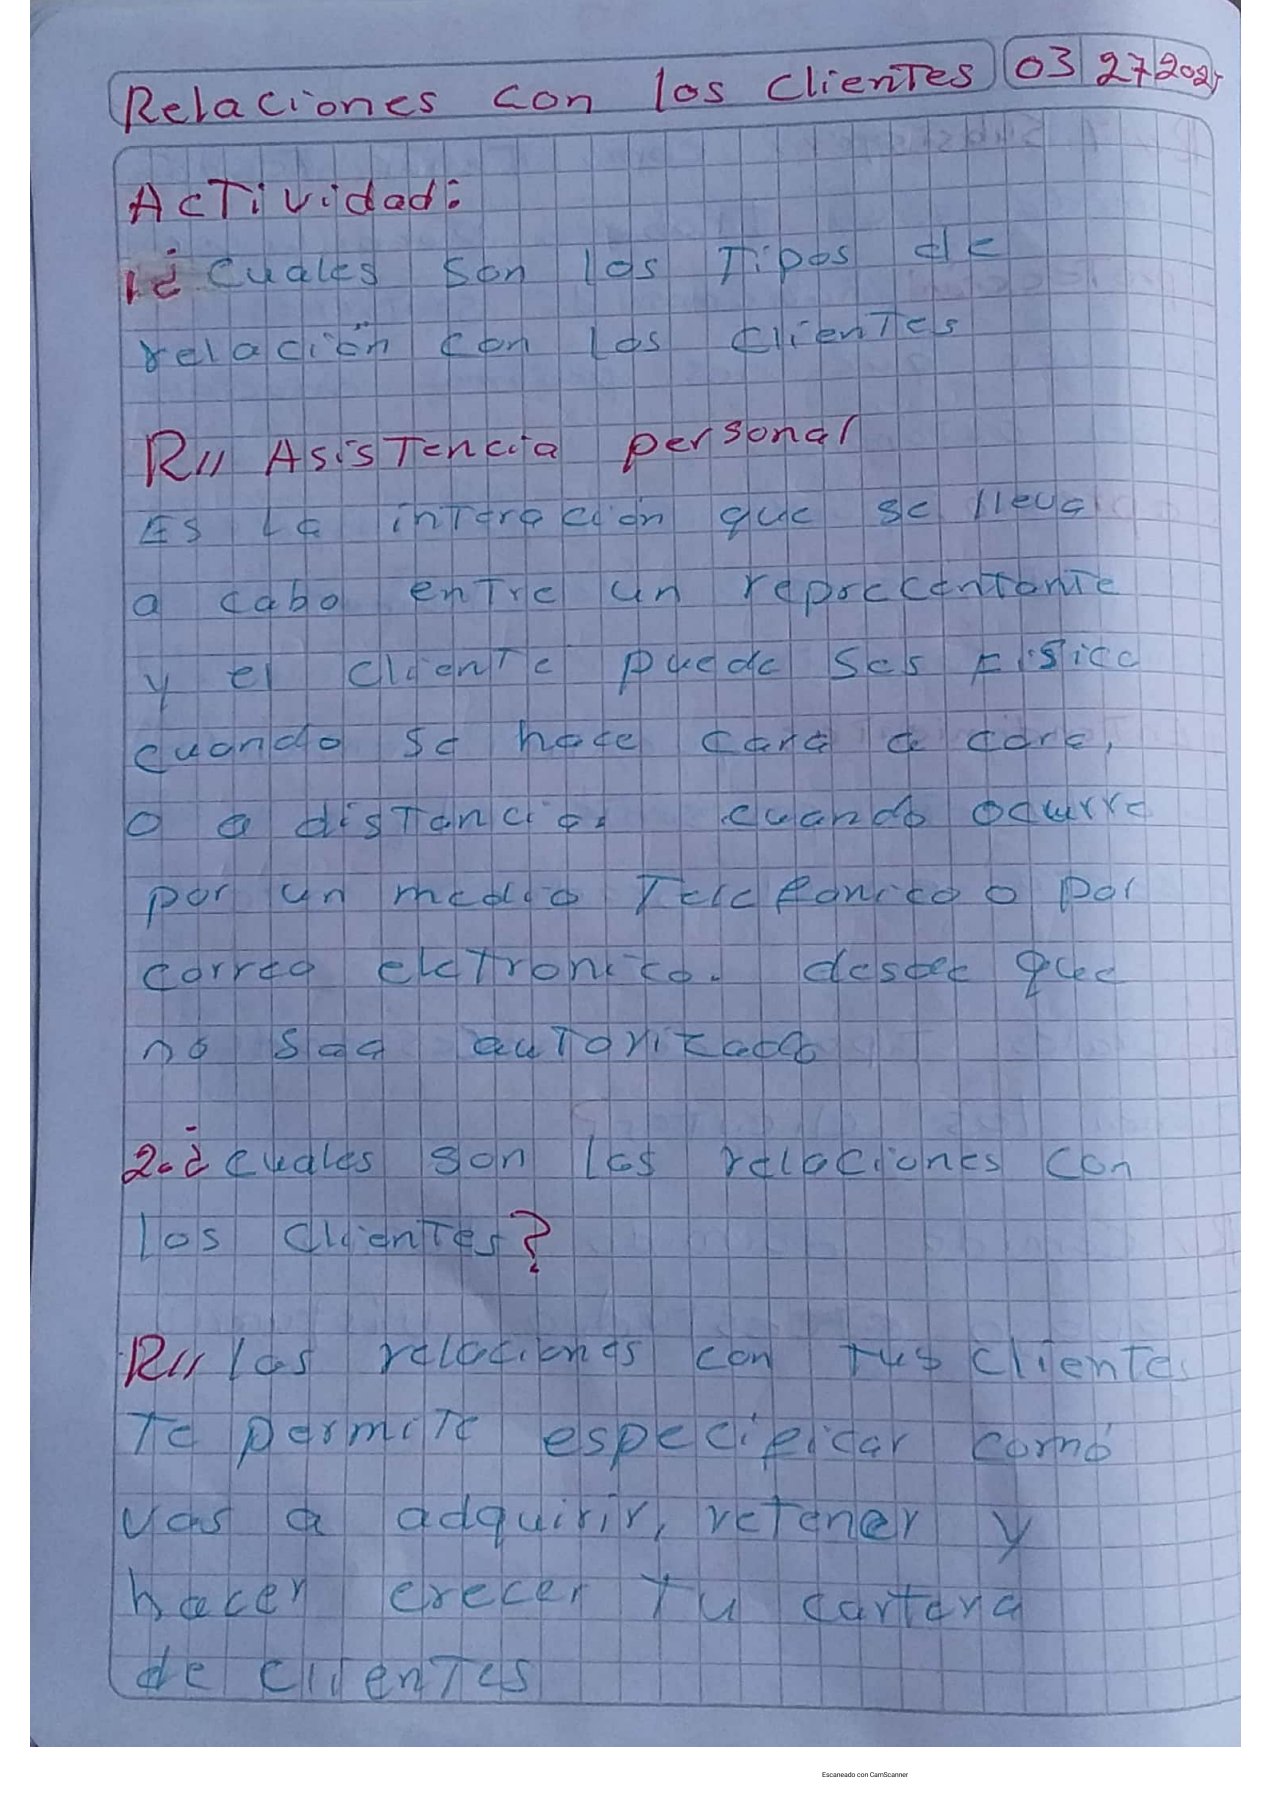 Relaciones con los clientes 03 27 2025
Actividad:
1¿ Cuales son los Tipos de
relación con los clientes
R// Asistencia personal
Es la interación que se lleva
a cabo entre un reprecentante
y el cliente puede ses Fisica
cuando se hace cara a cara,
o a distancia. cuando ocurre
por un medio Telefonico o por
correo eletronico. que
no sea autorizada
2.¿ cuales son las relaciones con
los clientes?
R// las relaciones con tus clientes
Te permite especificar como
vas a adquirir, retener y
hacer crecer Tu cartera
de clientes
Escaneado con CamScanner